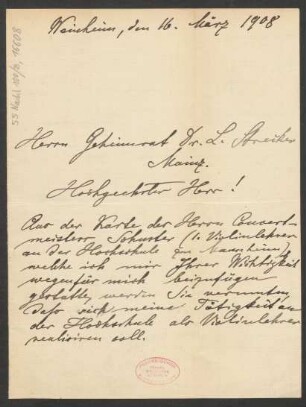 Weinheim, den 16. März 1908
Herrn Geheimrat Dr. L. Strecker
Mainz.
Hochgeehrter Herr!
Aus der Karte des Herrn Concert-
meisters Schuster (1. Violinlehrer
an der Hochschule in Mannheim),
welche ich mir Ihrer Wichtigkeit
wegen für mich beizufügen
gestatte, werden Sie
daß sich meine Tätigkeit an
der Hochschule als Violinlehrer
realisiren soll.